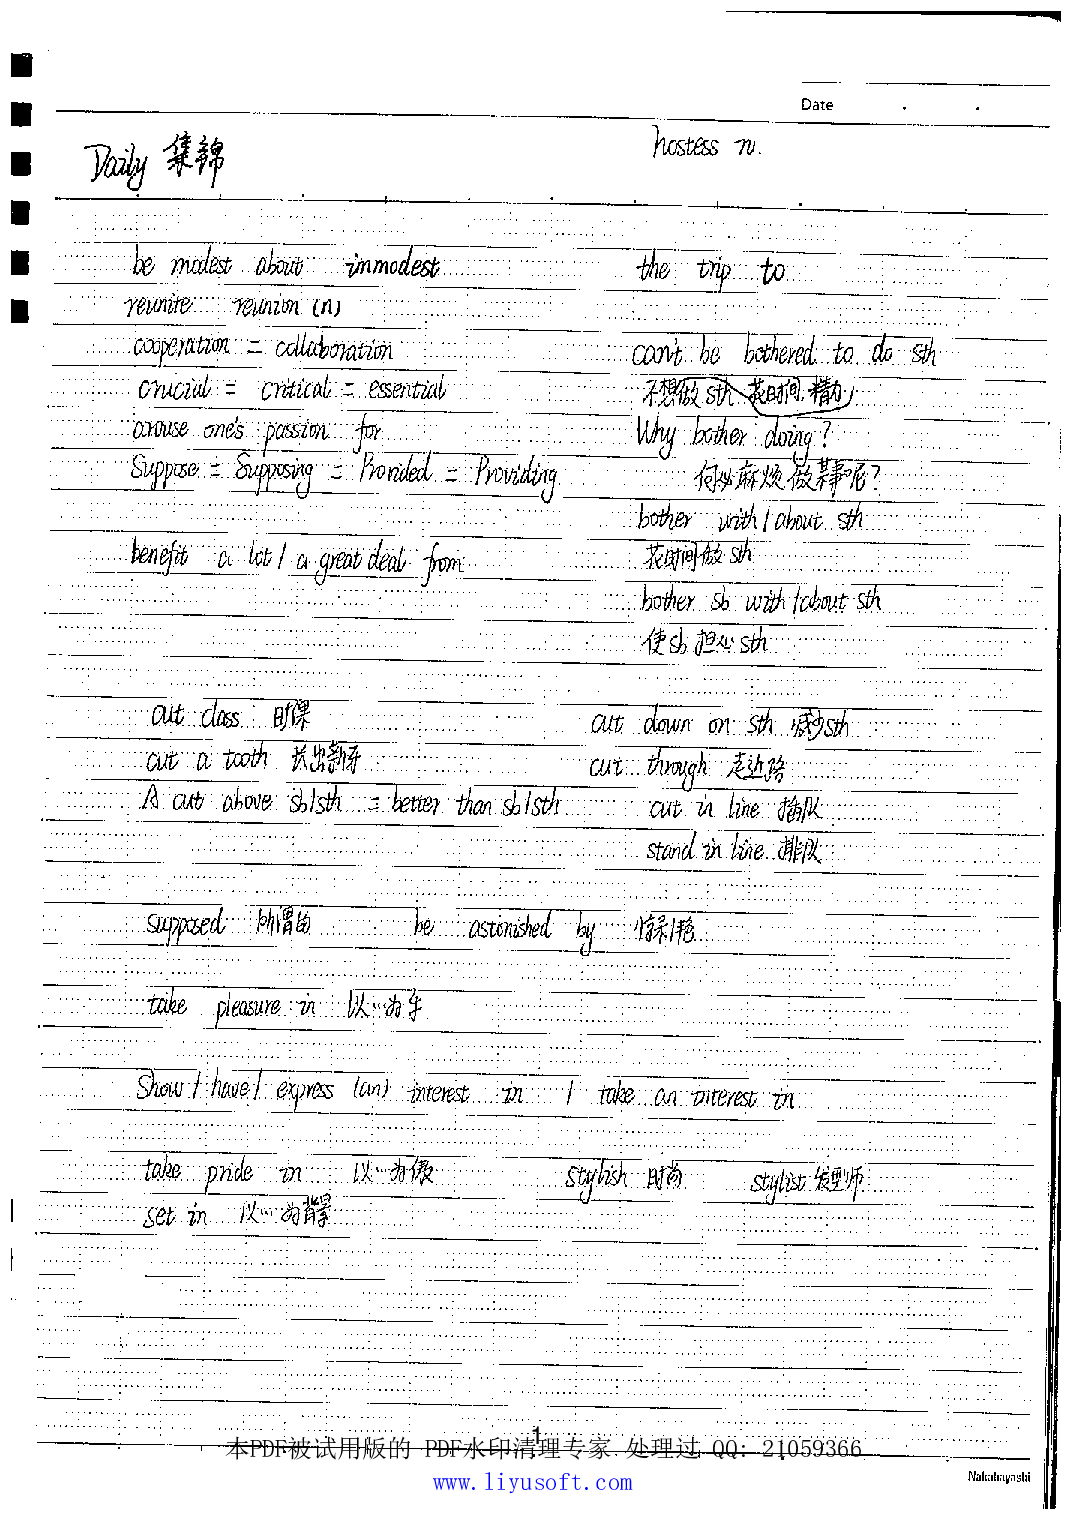 Date . .
hostess n.
Daily 集锦
be modest about immodest
the trip to
reunite reunion (n)
cooperation = collaboration
can't be bothered to do sth
crucial = critical = essential
不想做 sth 花时间、精力
arouse one's passion for
Why bother doing?
Suppose = Supposing = Provided = Providing
何必麻烦做某事呢?
bother with / about sth
benefit a lot / a great deal from
花时间做 sth
bother sb with / about sth
使 sb 担心 sth
cut class 旷课
cut down on sth 减少 sth
cut a tooth 长出新牙
cut through 走近路
A cut above sb/sth = better than sb/sth
cut in line 插队
stand in line 排队
supposed 所谓的 be astonished by
take pleasure in 以…为乐
Show / have / express (an) interest in / take an interest in
take pride in 以…为傲 stylish 时尚 stylist 发型师
set in 以…为背景
1
本PDF被试用版的 PDF水印清理专家 处理过 QQ: 21059366
www.liyusoft.com
Nakabayashi